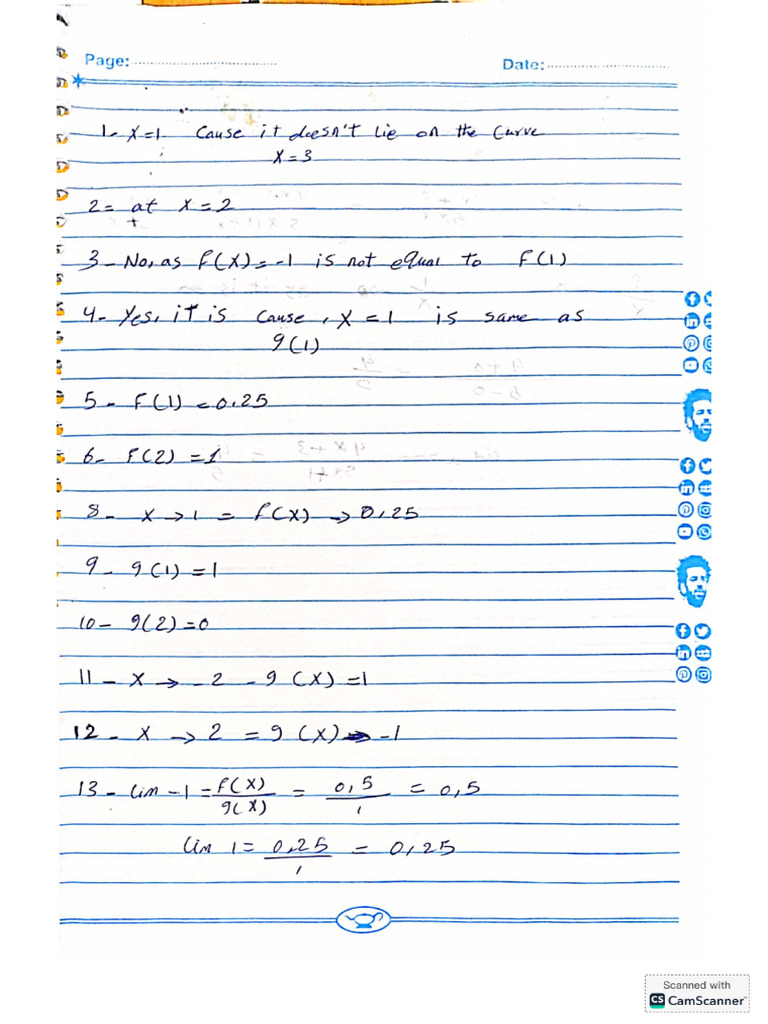 Page: ............................... Date: ...............................
1- x=1 Cause it doesn't lie on the Curve
x=3
2= at x=2
+
3- No, as f(x)=-1 is not equal to f(1)
4- Yes, it is cause, x=1 is same as
g(1)
5- f(1) = 0,25
6- f(2) = 1
8- x → 1 = f(x) → 0,25
9- g(1) = 1
10- g(2) = 0
11- x → -2 - g(x) = 1
12- x → 2 = g(x) → -1
13- Lim -1 = f(x)/g(x) = 0,5/1 = 0,5
Lim 1 = 0,25/1 = 0,25
Scanned with
CS CamScanner